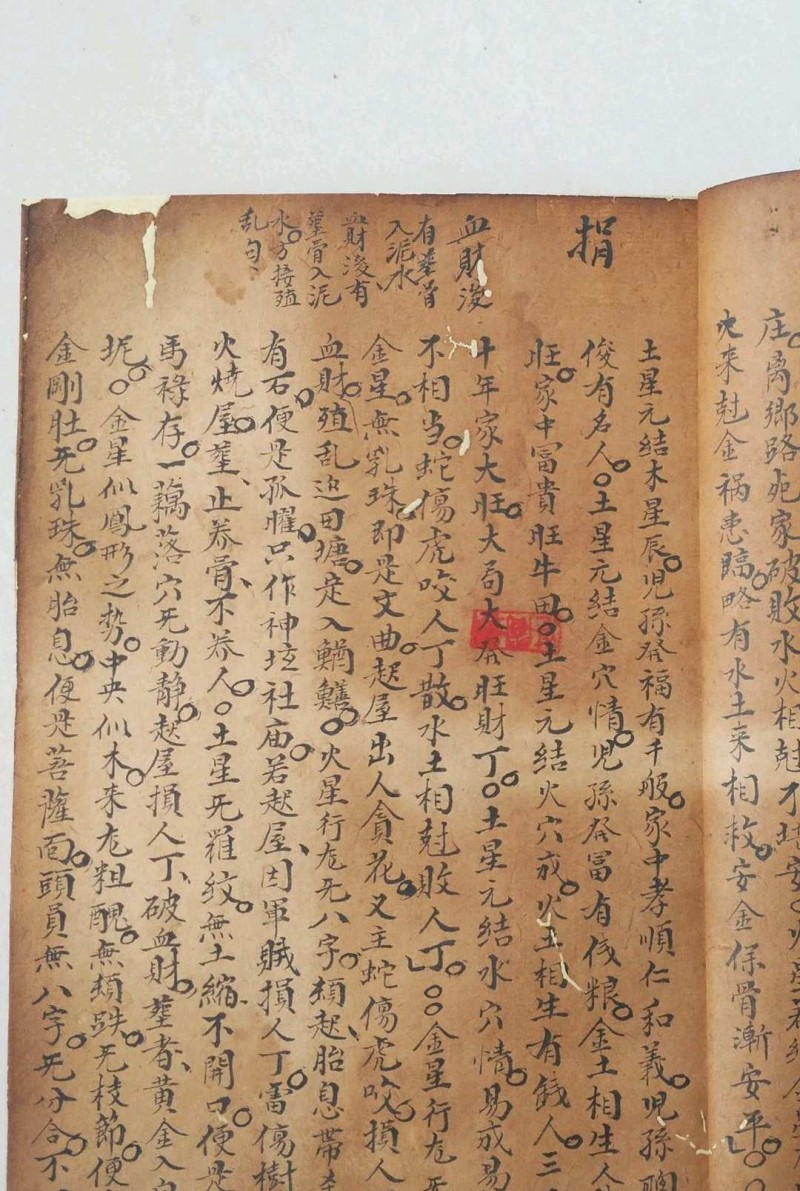 庄。离鄉路宛家破敗水火相尅不
火来尅金祸患臨。略有水土来相救。安金保骨漸安平。
捐
土星元結木星辰。児孫發福有千般。家中孝順仁和義。児孫聰
俊有名人。土星元結金穴情。児孫發冨有伐粮。金土相生人
旺。家中冨貴旺牛田。土星元結火穴成。火土相生有錢人。三
血財後
十年家大旺。大局大發旺財丁。土星元結水穴情。易成易
有塟骨
入泥水、
不相当。蛇傷虎咬人丁散。水土相尅敗人丁。金星行龙无
血財後有
金星。無乳珠。即是文曲。起屋出人貪花。又主蛇傷虎咬。損人
塟骨入泥
血財。殖乱近田塘。定入鰗鱔。火星行龙无八字。頬起、胎息帶
水。方接殖
有石。便是孤㬢。只作神坛社庙。若起屋、因軍賊損人丁。雷傷樹
乱勻、
火燒屋。塟、止养骨、不养人。土星无羅紋。無土縮。不開口。便是
馬禄存。一藕落穴无動靜。起屋損人丁、破血財。塟者、黄金入
坭。金星似鳳形之勢。中央似木。来龙粗醜。無頬跌。无枝節。便
金剛肚。无乳珠。無胎息。便是菩薩面。頭員無八字。无分合。不